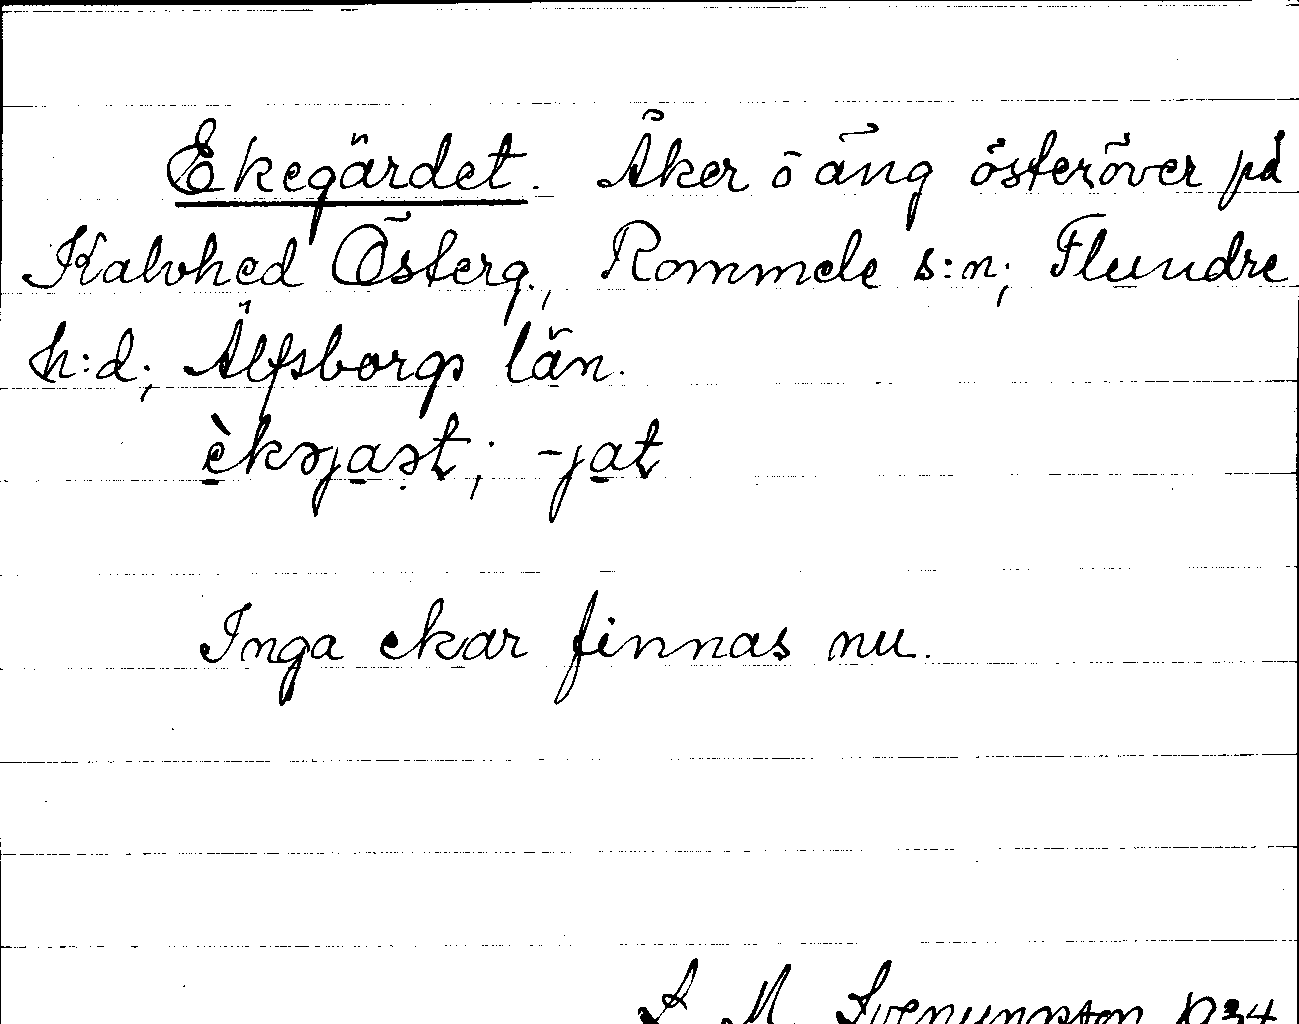 Ekegärdet. Åker ö äng österöver på
Kalvhed Österg., Rommele s:n; Flundre
h:d; Älfsborgs län.
èkəjaət; -jat
Inga ekar finnas nu.
S. M. Svenungsson 1934